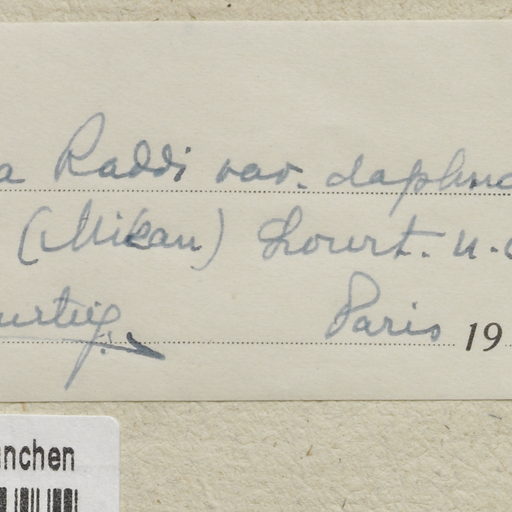 a Raddi var. daphno
(Mikan) Lourt. n. c
urteig. Paris 19
nchen